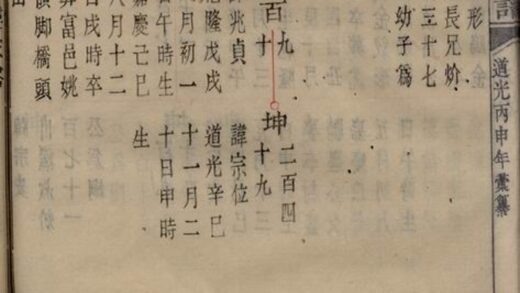 道光丙申年彙纂
金
長兄炌
三十七
幼子爲
百九
坤 二百四
十九
兆貞 諱宗位
隆戊戌 道光辛巳
月初一 十一月二
午時生 十日申時
嘉慶己巳 生
戌時卒
八月十二
葬富邑姚
嶺脚橋頭